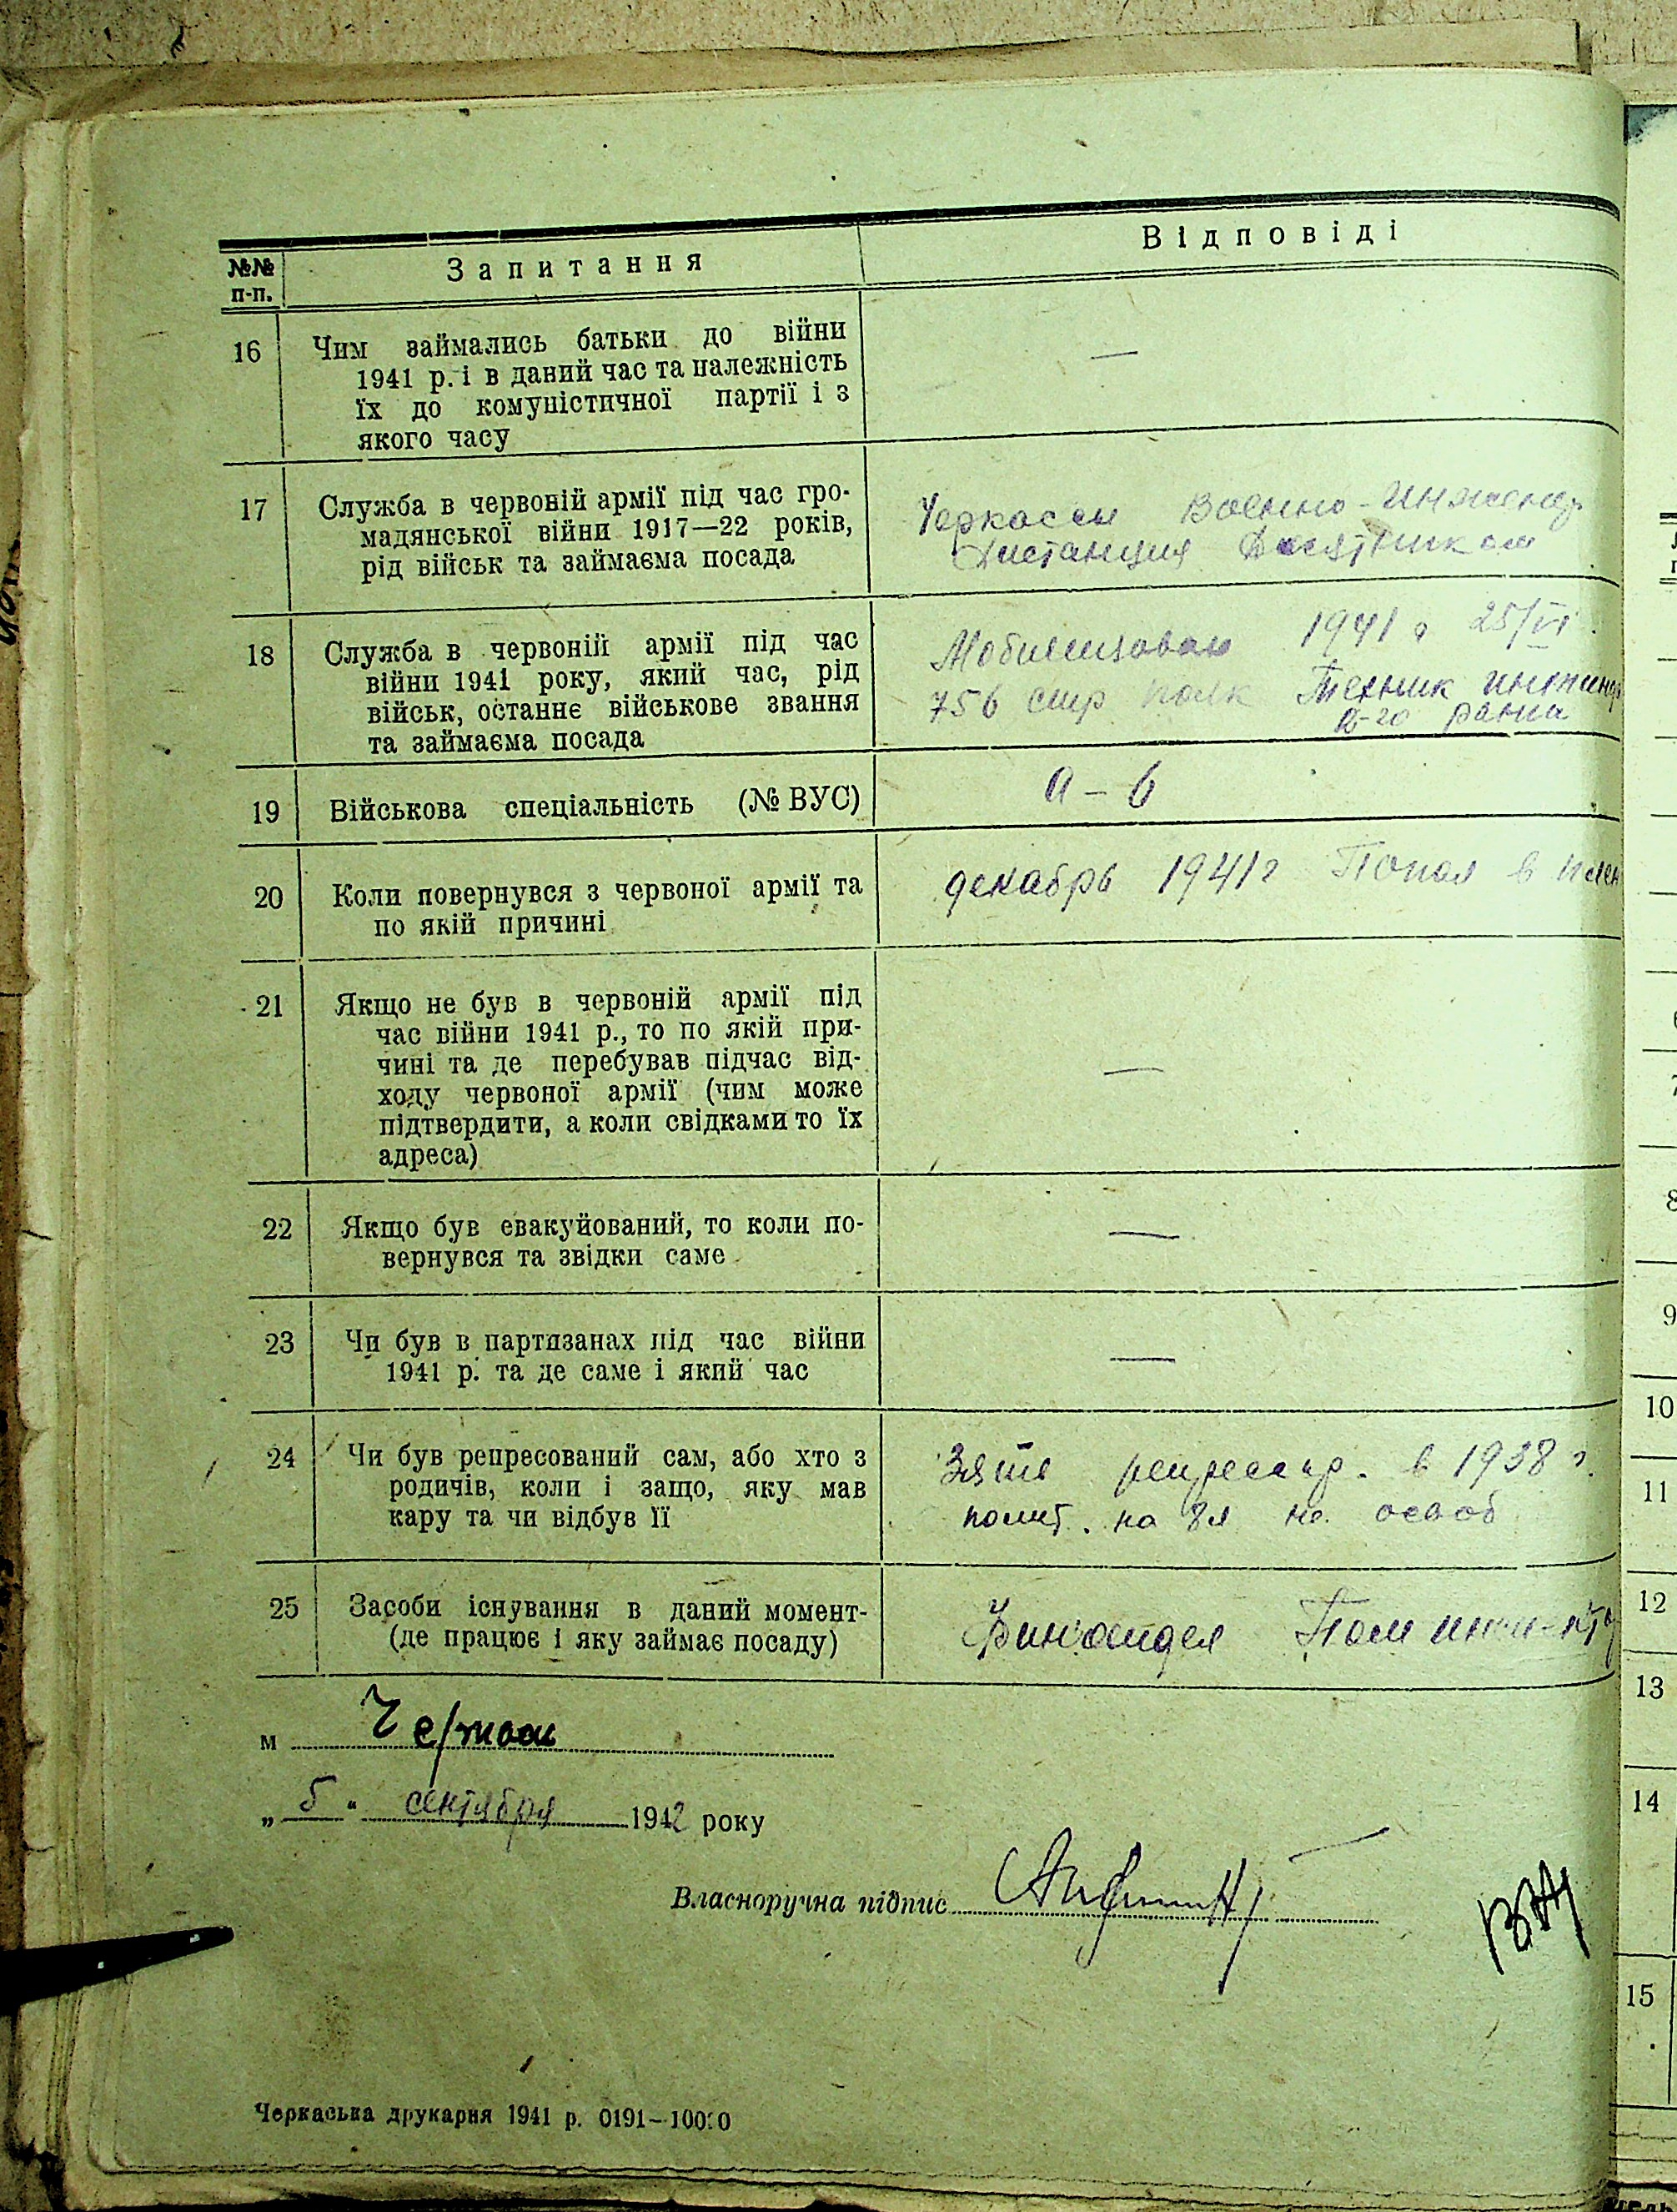 №№ п-п.
Запитання
Відповіді
16
Чим займались батьки до війни
1941 р. і в даний час та належність
їх до комуністичної партії і з
якого часу
—
17
Служба в червоній армії під час гро-
мадянської війни 1917—22 років,
рід військ та займаєма посада
Черкассы Военно-Инженер
Дистанция Десятником
18
Служба в червоній армії під час
війни 1941 року, який час, рід
військ, останнє військове звання
та займаєма посада
Мобилизован 1941 г 25/VI.
756 стр полк Техник инжинер
ранга
19
Військова спеціальність (№ ВУС)
а – 6
20
Коли повернувся з червоної армії та
по якій причині
декабрь 1941г Попал в плен
21
Якщо не був в червоній армії під
час війни 1941 р., то по якій при-
чині та де перебував підчас від-
ходу червоної армії (чим може
підтвердити, а коли свідками то їх
адреса)
—
22
Якщо був евакуйований, то коли по-
вернувся та звідки саме
—
23
Чи був в партизанах під час війни
1941 р. та де саме і який час
—
24
Чи був репресований сам, або хто з
родичів, коли і защо, яку мав
кару та чи відбув її
Зять репрессир. в 1938 г.
полит. на 8л не освоб
25
Засоби існування в даний момент-
(де працює і яку займає посаду)
Финотдел Пом
м
„ 5 “ сентября 1942 року
Власноручна підпис
Черкаська друкарня 1941 р. 0191—10000
8
9
10
11
12
13
14
15